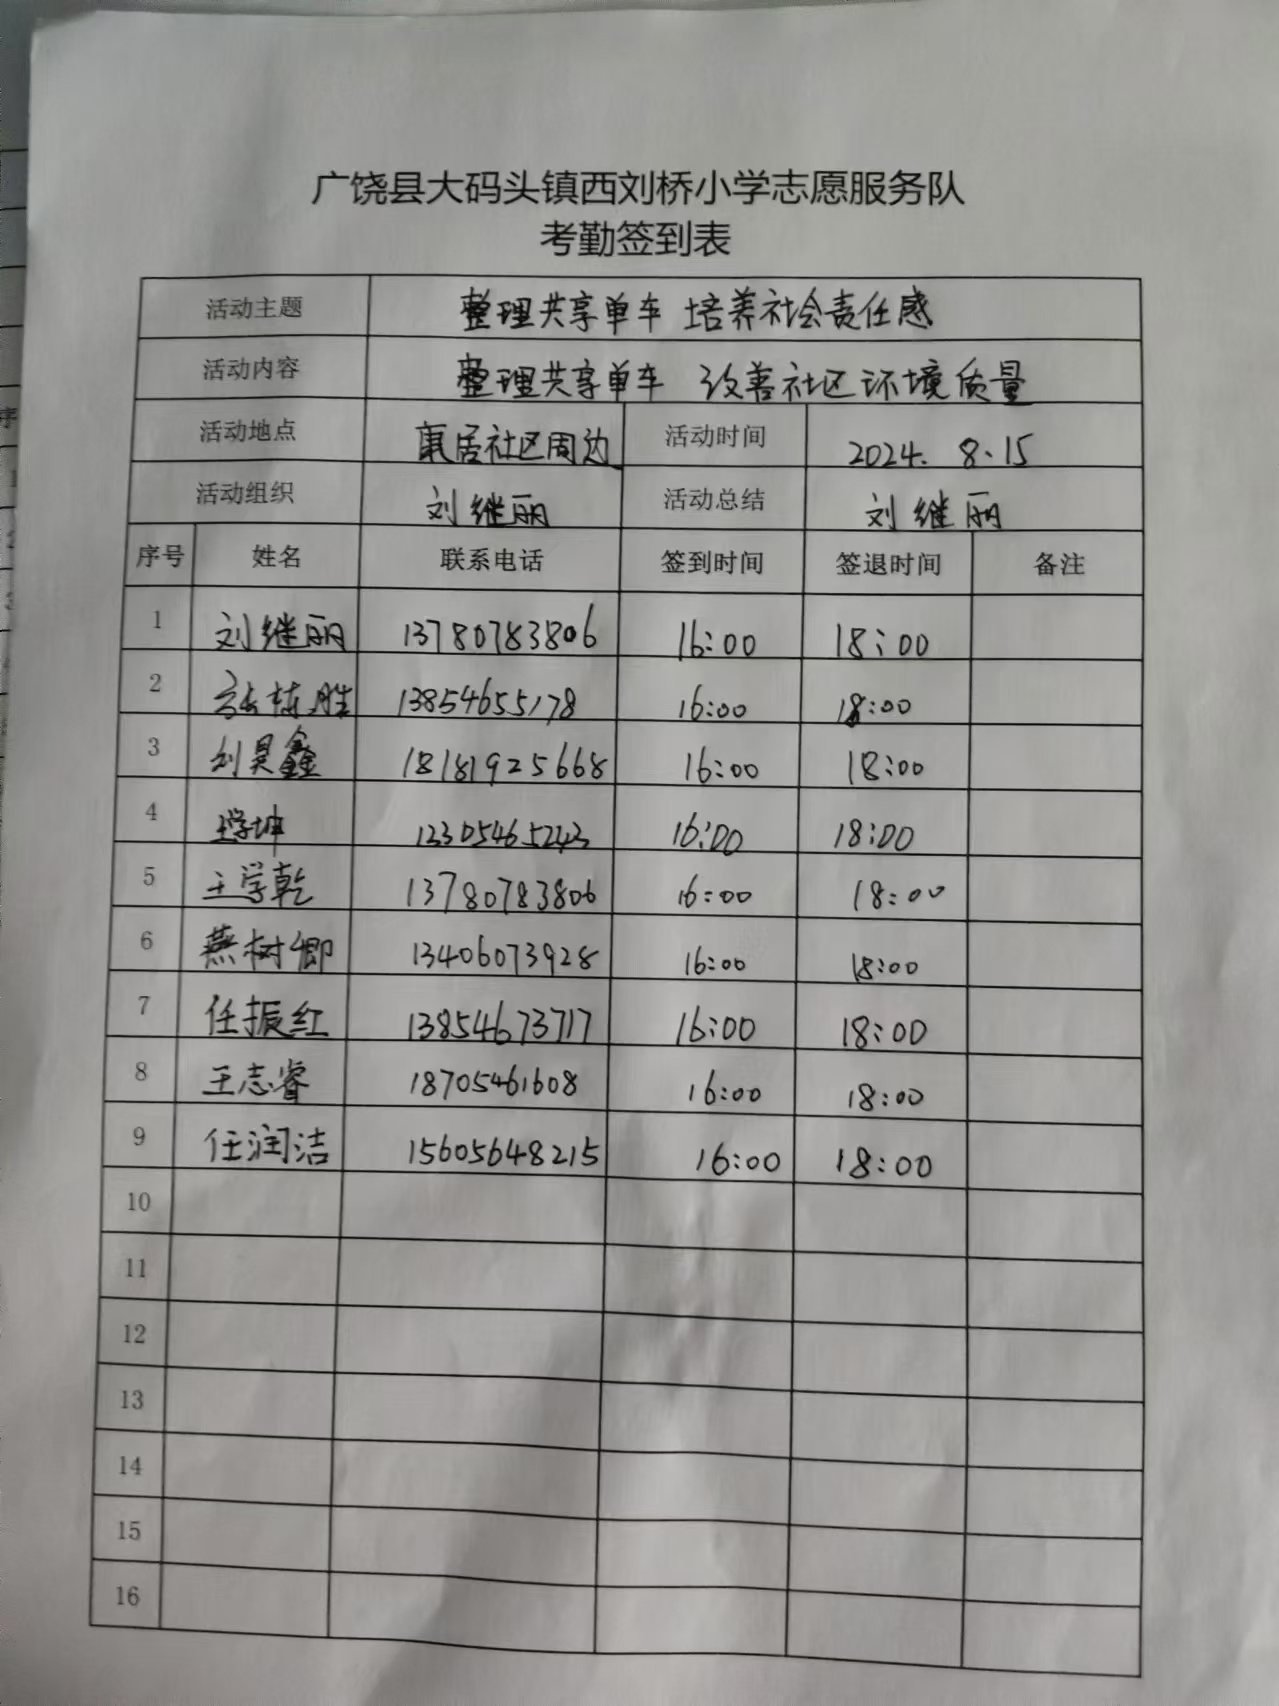 广饶县大码头镇西刘桥小学志愿服务队
考勤签到表
活动主题 整理共享单车 培养社会责任感
活动内容 整理共享单车 改善社区环境质量
活动地点 康居社区周边 活动时间 2024. 8.15
活动组织 刘继丽 活动总结 刘继丽
序号 姓名 联系电话 签到时间 签退时间 备注
1 刘继丽 13780783806 16:00 18:00
2 张栋胜 13854655178 16:00 18:00
3 刘昊鑫 18181925668 16:00 18:00
4 王学坤 16:00 18:00
5 王学乾 13780783806 16:00 18:00
6 燕树卿 13406073928 16:00 18:00
7 任振红 13854673717 16:00 18:00
8 王志睿 18705461608 16:00 18:00
9 任润洁 15605648215 16:00 18:00
10
11
12
13
14
15
16